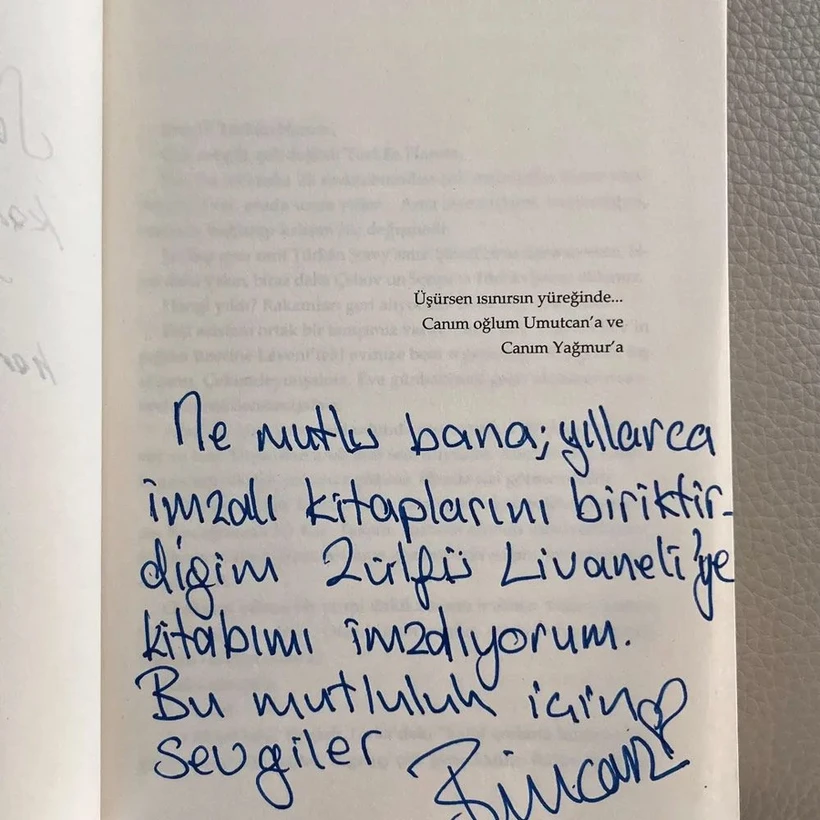 Üşürsen ısınırsın yüreğinde...
Canım oğlum Umutcan'a ve
Canım Yağmur'a
Ne mutlu bana; yıllarca
imzalı kitaplarını biriktir-
diğim Zülfü Livaneli'ye
kitabımı imzalıyorum.
Bu mutluluk için
sevgiler